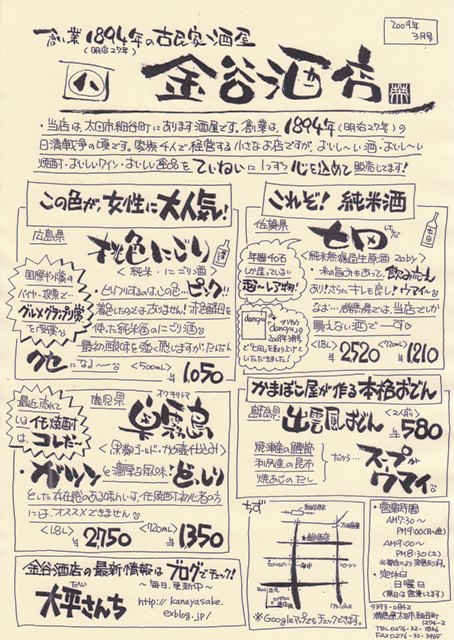 創業1894年の古民家酒屋
(明治27年)
2009年
3月号
金谷酒店
・当店は、太田市細谷町にあります酒屋です。創業は、1894年(明治27年)の
日清戦争の頃です。家族4人で経営する小さなお店ですが、おいし〜い酒・おいし〜い
焼酎・おいしいワイン・おいしい食品をていねいに1つずつ心を込めて販売してます!
この色が、女性に大人気!
広島県
桃色にごり
<純米・にごり酒>
国際ヤン賞の
バイヤー投票で…
グルメグランプリ賞
を受賞!
・びっくりするのは、この色…ピンク!!
着色したのではありません!赤色酵母を
使った純米酒のにごり酒。
最初酸味を強く感じますが、だんだん
クセになる〜。
<500ml>
¥1,050
これぞ!純米酒
佐賀県
七田
しちだ
七田
<純米無濾過生原酒 20by>
年間40石
しか造っていない
超〜レア物!
・米の旨みもあって、飲み応え
あり!さらにキレも良し!ウマイ〜。
なお…群馬県では、当店でしか
買えない酒で〜す♡
dancyu
2009年3月号
で七田を取り上げて
いただきました!
<1.8L>
¥2,520
<720ml>
¥1,210
最近売れて
いる芋焼酎は
コレだ〜
鹿児島県
奥霧島
オクキリシマ
<黒麹ゴールド・かめ壺仕込み>
・ガツンと濃厚な風味!どっしり
とした存在感のある味わいは、芋焼酎初心者の方
には、オススメできません。
<1.8L>
¥2,750
<720ml>
¥1,350
かまぼこ屋が作る本格おでん
島根県
出雲風おでん
<2人前>
¥580
焼津産の鰹節
利尻産の昆布
焼あごのだし
だから…
スープが
ウマイ。
金谷酒店の最新情報はブログでチェック!
〜毎日更新中〜
太平さんち
http://kanayasake.
exblog.jp/
ちず
※Googleマップでもチェックできます。
・営業時間
AM7:30〜
PM9:00(月〜金)
AM9:00〜
PM8:30(土)
・定休日
日曜日
〒373-0842
群馬県太田市細谷町
1296-2
TEL0276-32-1826
FAX0276-32-3965